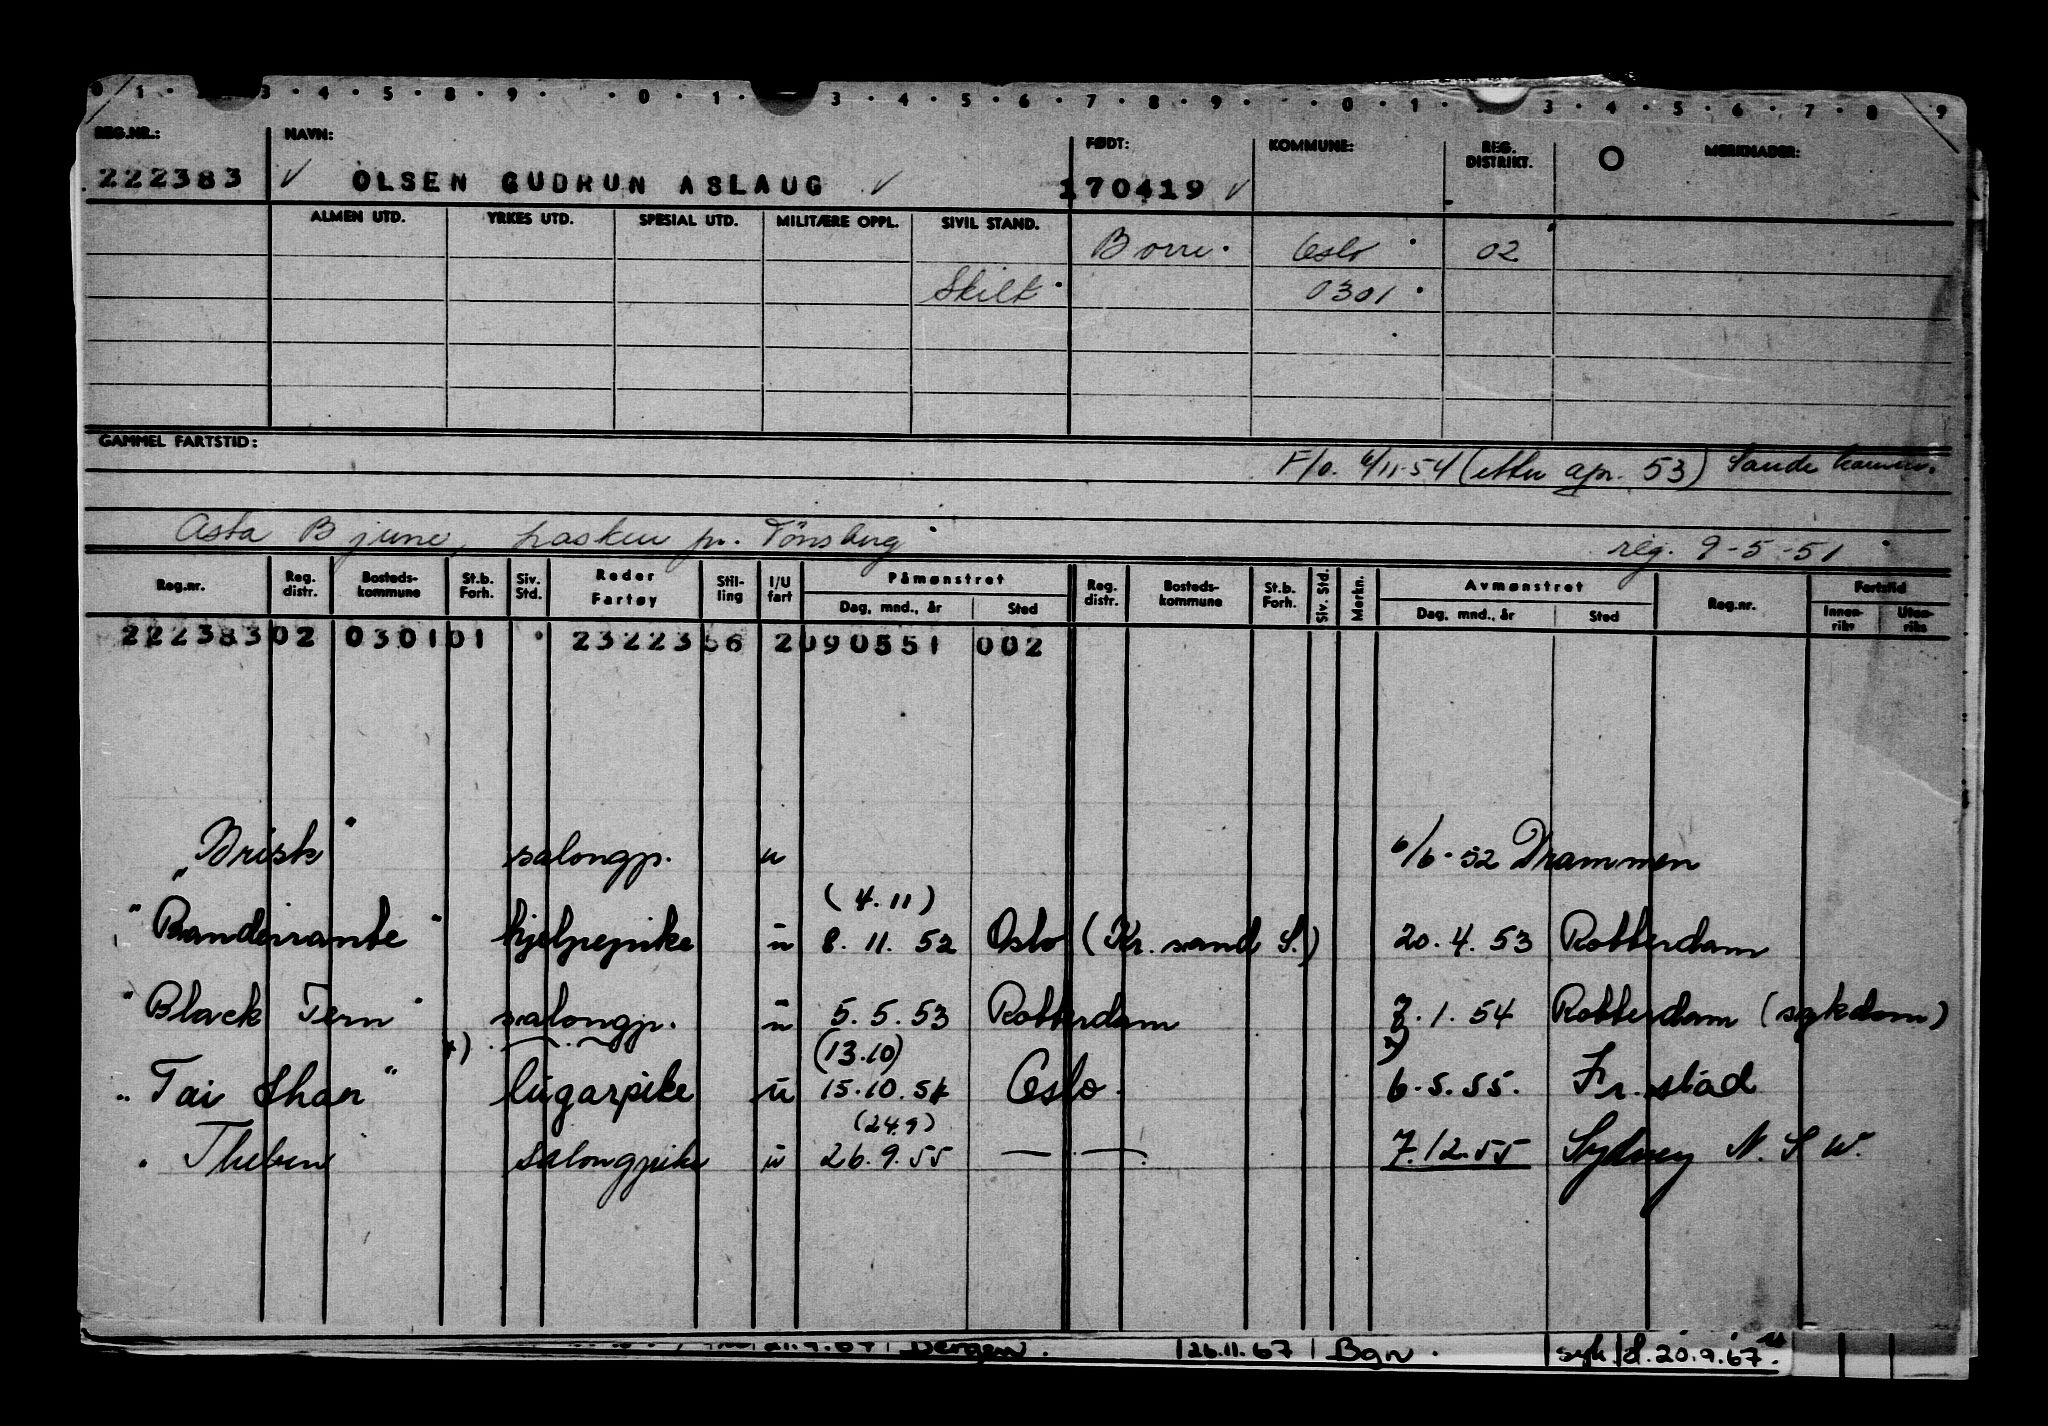 0 1 · 2 · 3 · 4 · 5 · 8 · 9 · · 0 · 1 · 3 · 4 · 5 · 6 · 7 · 8 · 9 · · 0 · 1 · 3 · 4 · 5 · 6 · 7 · 8 · 9
REG.NR.: NAVN: FØDT: KOMMUNE: REG. DISTRIKT. O MERKNADER:
222383 ✓ OLSEN GUDRUN ASLAUG ✓ 170419 ✓
ALMEN UTD. YRKES UTD. SPESIAL UTD. MILITÆRE OPPL. SIVIL STAND.
Borre. Oslo 02
Skilt 0301
GAMMEL FARTSTID:
F/o. 6/11-54 (etter apr. 53) Sande komm.
Asta Bjune, pr. Tönsberg reg. 9-5-51
Reg.nr. Reg. distr. Bosteds-kommune St.b. Forh. Siv. Std. Reder Fartøy Stil-ling I/U fart Påmønstret Dag, mnd., år Sted Reg. distr. Bosteds-kommune St.b. Forh. Siv. Std. Merkn. Avmønstret Dag, mnd., år Sted Reg.nr. Fartstid Innen-riks Uten-riks
222383 02 0301 01 23223 66 2 090551 002
"Brisk" salongp. u 6/6-52 Drammen
(4.11)
"Bandeirante" hjelpepike u 8.11.52 Oslo (Kr.sand S.) 20.4.53 Rotterdam
"Black Tern" salongp. u 5.5.53 Rotterdam 7.1.54 Rotterdam (sykdom)
x) (13.10)
"Tai Shan" lugarpike u 15.10.54 Oslo. 6.5.55. Fr.stad
(24.9)
" Theben salongpike u 26.9.55 — " — 7.12.55 Sydney N.S.W.
Bergen. 26.11.67 Bgn. syk d. 20.9.67.